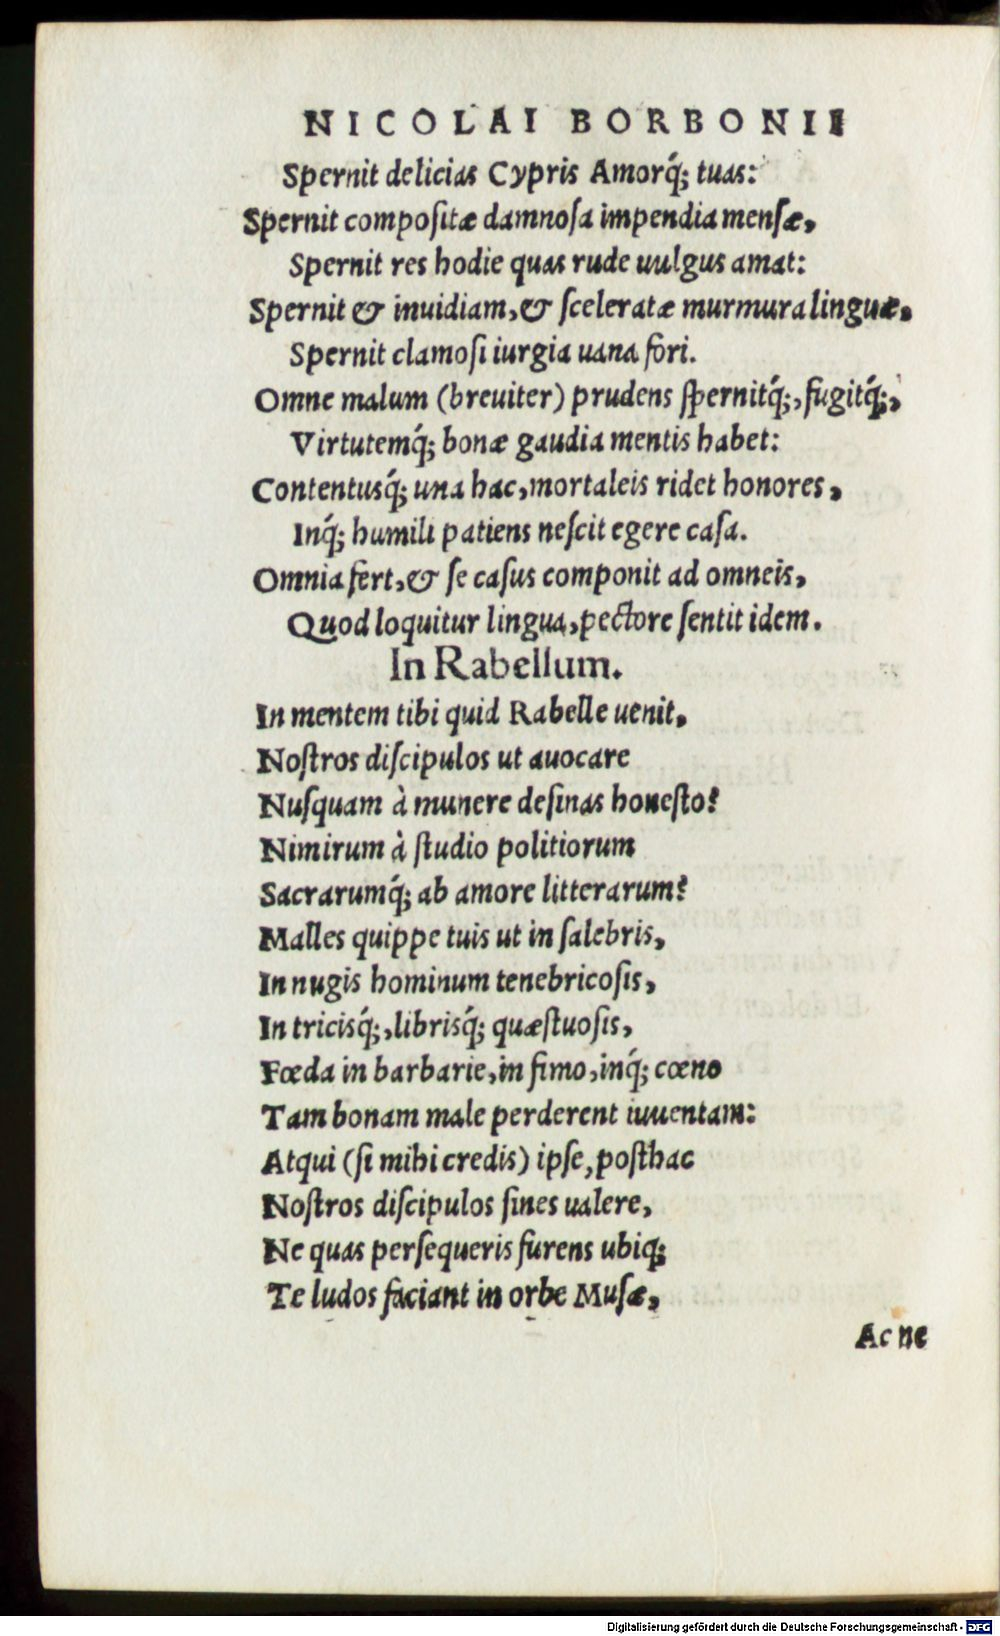 NICOLAI BORBONII
Spernit delicias Cypris Amorq́; tuas:
Spernit compoſitæ damnoſa impendia menſæ,
Spernit res hodie quas rude uulgus amat:
Spernit & inuidiam, & ſceleratæ murmura linguæ,
Spernit clamoſi iurgia uana fori.
Omne malum (breuiter) prudens ſpernitq́;, fugitq́;,
Virtutemq́; bonæ gaudia mentis habet:
Contentusq́; una hac, mortaleis ridet honores,
Inq́; humili patiens neſcit egere caſa.
Omnia fert, & ſe caſus componit ad omneis,
Quod loquitur lingua, pectore ſentit idem.
In Rabellum.
In mentem tibi quid Rabelle uenit,
Noſtros diſcipulos ut auocare
Nuſquam à munere deſinas honeſto?
Nimirum à ſtudio politiorum
Sacrarumq́; ab amore litterarum?
Malles quippe tuis ut in ſalebris,
In nugis hominum tenebricoſis,
In tricisq́;, librisq́; quæſtuoſis,
Fœda in barbarie, in fimo, inq́; cœno
Tam bonam male perderent iuuentam:
Atqui (ſi mihi credis) ipſe, poſthac
Noſtros diſcipulos ſines ualere,
Ne quas perſequeris furens ubiq;
Te ludos faciant in orbe Muſæ,
Ac ne
Digitalisierung gefördert durch die Deutsche Forschungsgemeinschaft - DFG